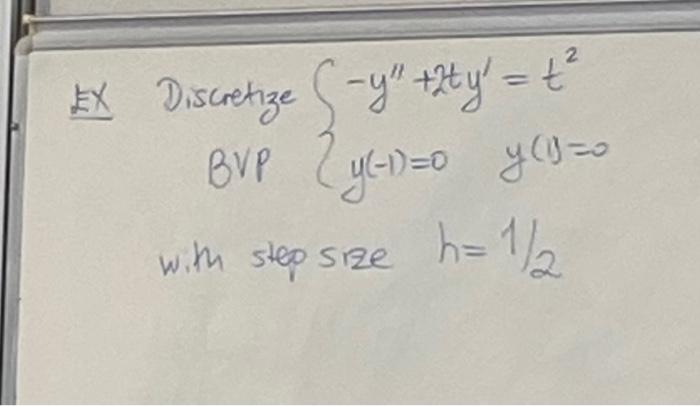 EX Discretize { -y'' + 2ty' = t²
BVP { y(-1)=0 y(1)=0
with step size h= 1/2